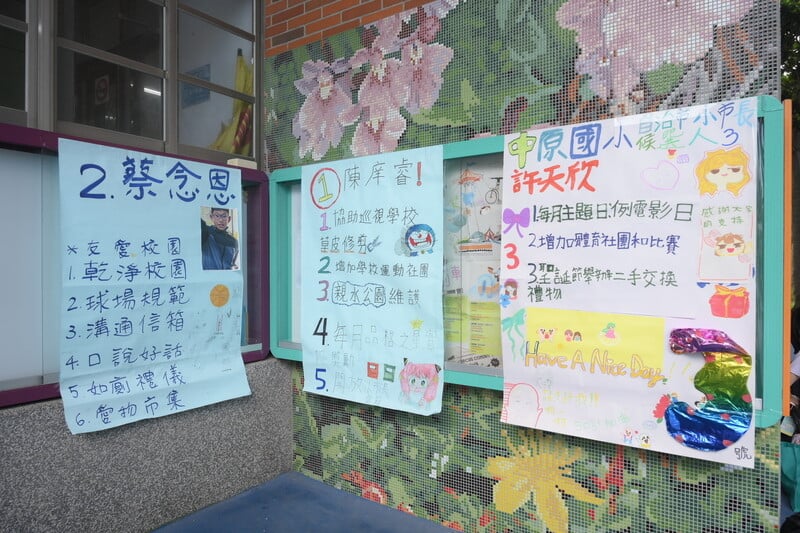 2. 蔡念恩
*友愛校園
1. 乾淨校園
2. 球場規範
3. 溝通信箱
4. 口說好話
5. 如廁禮儀
6. 愛物市集
① 陳庠睿!
1 協助巡視學校
草皮修剪
2 增加學校運動社團
3. 親水公園維護
4. 每月品格之星
5. 開放
中原國小自治市小市長
候選人3
許天欣
1.每月主題日:例電影日
2.增加體育社團和比賽
3.聖誕節舉辦二手交換
禮物
3
感謝大家
的支持
Have A Nice Day
3
號